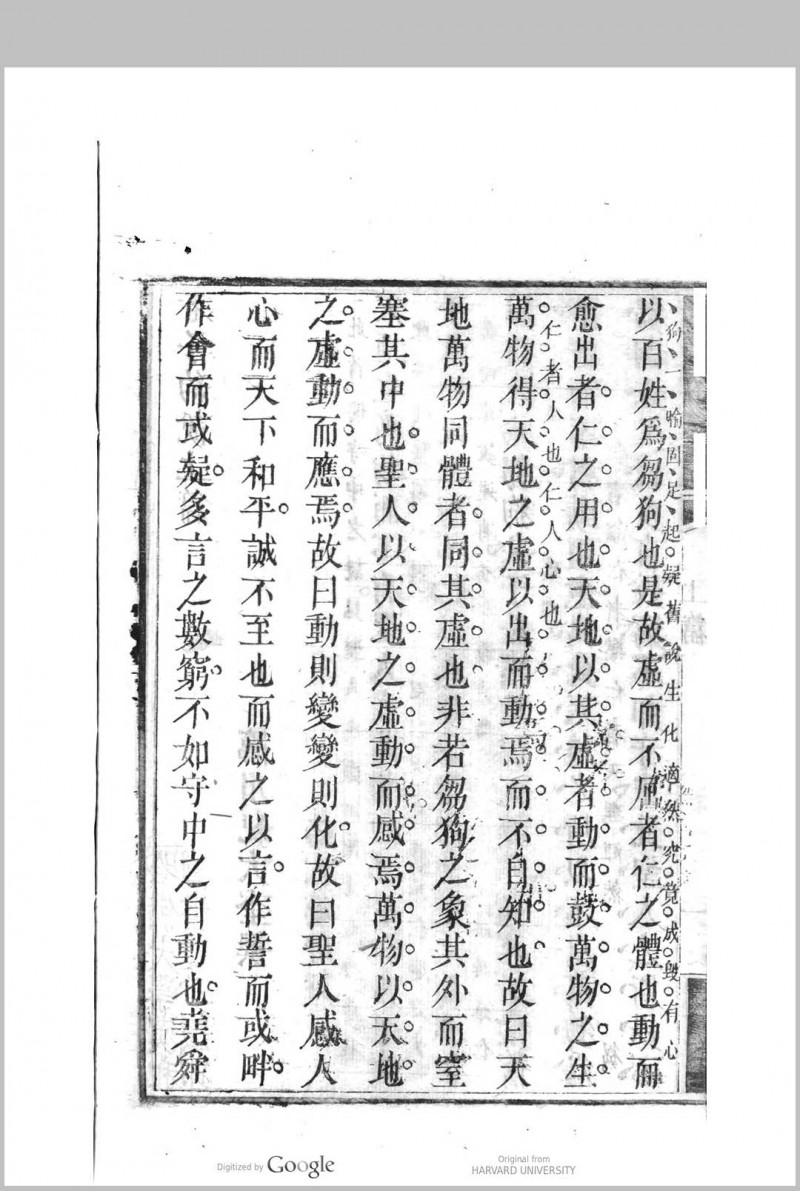 以百姓爲芻狗也是故虛而不屈者仁之體也動而
狗一喻固足起疑舊說生化適然究竟成毀有心
愈出者仁之用也天地以其虛者動而鼓萬物之生
仁者人也仁人心也
萬物得天地之虛以出而動焉而不自知也故曰天
地萬物同體者同其虛也非若芻狗之象其外而窒
塞其中也聖人以天地之虛動而感焉萬物以天地
之虛動而應焉故曰動則變變則化故曰聖人感人
心而天下和平誠不至也而感之以言作誓而或畔
作會而或疑多言之數窮不如守中之自動也堯舜
Digitized by Google
Original from
HARVARD UNIVERSITY